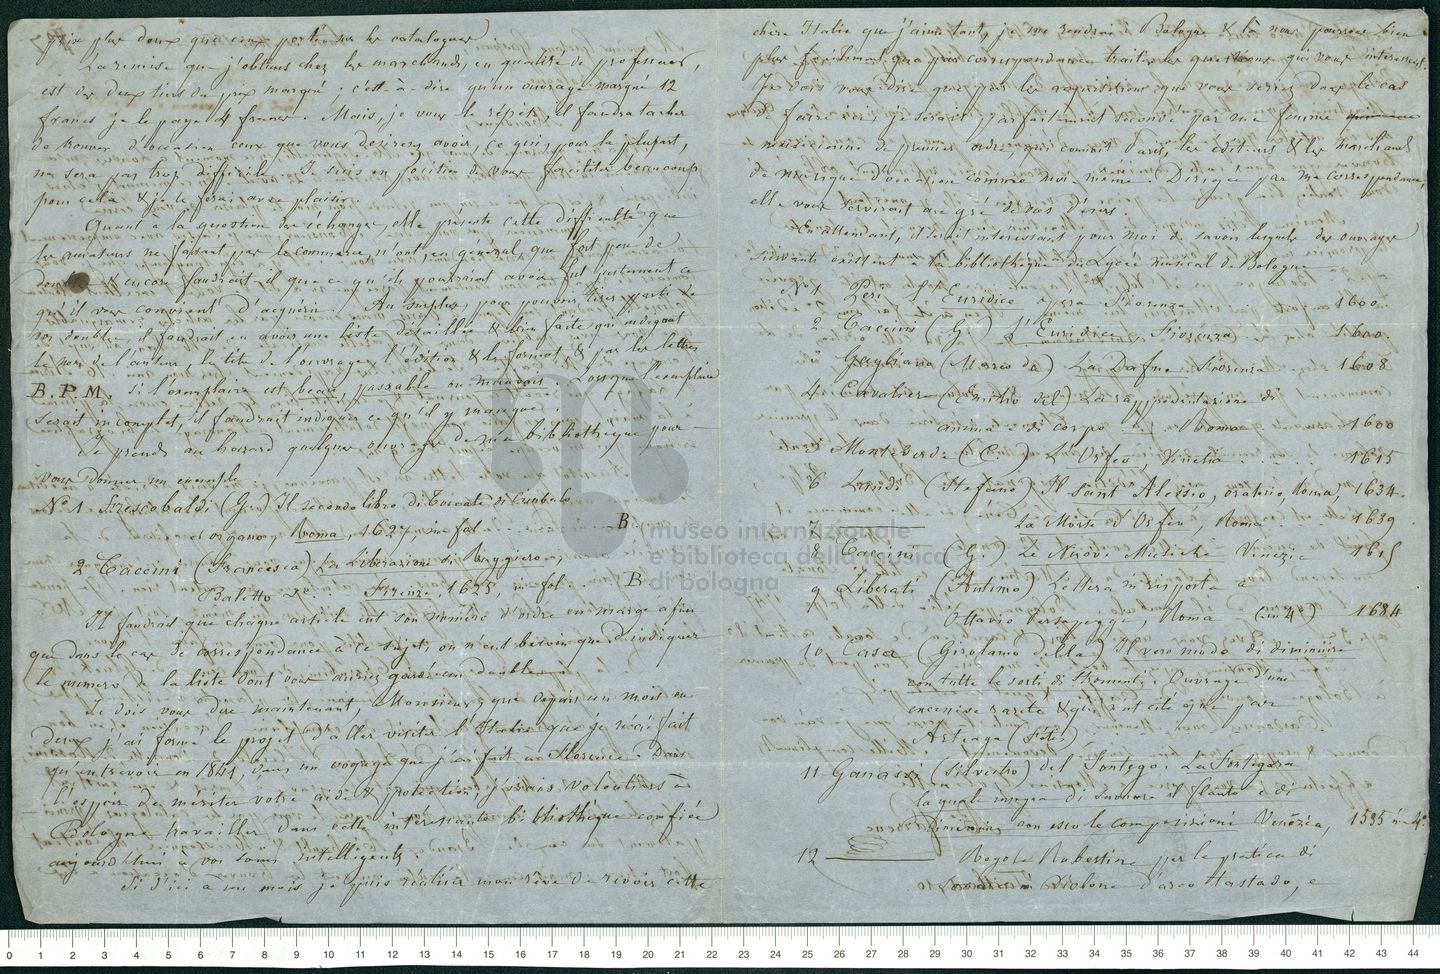 prix plus doux que ceux portés sur les catalogues.
La remise que j'obtiens chez les marchands, en qualité de professeur,
est de deux tiers du prix marqué; c'est-à-dire qu'un ouvrage marqué 12
francs je le paye 4 francs. Mais, je vous le répète, il faudra tacher
de trouver d'occasion ceux que vous desirez avoir, ce qui, pour la plupart,
ne sera pas trop difficile. Je suis en position de vous faciliter beaucoup
pour cela & je le ferai avec plaisir.
Quant à la question des échanges, elle présente cette difficulté que
les amateurs ne faisant pas le commerce n'ont, en général que fort peu de
doubles & encore faudrait-il que ce qu'ils pourraient avoir fut justement ce
qu'il vous convient d'acquérir. Au surplus, pour pouvoir tirer parti de
vos doubles il faudrait en avoir une liste détaillée & bien faite qui indiquat
le nom de l'auteur le titre de l'ouvrage, l'édition & le format & par les lettres
B. P. M. si l'exemplaire est beau, passable ou mauvais. Lorsque l'exemplaire
serait incomplet, il faudrait indiquer ce qu'il y manque.
Je prends au hazard quelques ouvrages de ma bibliothèque pour
vous donner un exemple
No 1. Frescobaldi (G.) Il secondo libro di Toccate di Cimbalo
et organo, Roma, 1627, in fol. B
2 Caccini (Francesca) La Liberazione di Ruggiero,
Balletto Firenze 1625, in fol. B
Il faudrait que chaque article eut son numéro d'ordre en marge afin
que dans le cas de correspondance à ce sujet, on n'eut besoin que d'indiquer
le numero de la liste dont vous auriez gardé un double.
Je dois vous dire maintenant, Monsieur, que depuis un mois ou
deux j'ai formé le projet d'aller visiter l'Italie que je n'ai fait
qu'entrevoir en 1841, dans un voyage que j'ai fait à Florence. Dans
l'espoir de meriter votre aide & protection, j'irais volontiers à
Bologne travailler dans cette intéressante bibliothèque confiée
aujourd'hui à vos soins intelligents.
Si d'ici à un mois je puis réaliser mon rêve de revoir cette
chère Italie que j'aime tant, je me rendrai à Bologne & là nous pourrons bien
plus facilement que par correspondance traiter les questions qui vous intéressent.
Je dois vous dire que pour les acquisitions que vous seriez dans le cas
de faire ici je serai parfaitement secondé par une femme
musicienne de premier ordre, qui connait Paris, les éditeurs & les marchands
de musique d'occasion comme moi-même. Dirigée par ma correspondance,
elle vous servirait au gré de vos désirs.
En attendant, il serait intéressant pour moi de savoir lesquels des ouvrages
suivants existent à la bibliothèque du Lycée musical de Bologne
No 1 Peri L'Euridice opera Fiorenza 1600.
2 Caccini (G.) L'Euridice, Fiorenza 1600
3 Gagliano (Marco da) La Dafne Firenze 1608
4 Cavaliere (Emilio del) La rappresentazione di
anima e di corpo Roma. 1600
5 Monteverde (C.) L'Orfeo, Venetia 1615
6 Landi (Stefano) Il Sant'Alessio, oratorio, Roma, 1634.
7 La Morte d'Orfeo, Roma 1639
8 Caccini (G.) Le Nuove Musiche Venezia 1615
9 Liberati (Antimo) Lettera in risposta a
Ottavio Persapegge, Roma (in 4º) 1684
10 Casa (Girolamo della) Il vero modo di diminuire
con tutte le sorti di stromenti. Ouvrage d'une
encaisse rareté & qui n'est cité que par
Arteaga (Fétis)
11 Ganassi (Silvestro) del Fontego. La Fontegara
la quale insegna di suonare il flauto e di
Diminuire con esso le composizioni Venezia, 1535 in 4º
12 Regola Rubertina per la pratica di
Violone d'arco Tastado, e
museo internazionale
e biblioteca della musica
di bologna
0 1 2 3 4 5 6 7 8 9 10 11 12 13 14 15 16 17 18 19 20 21 22 23 24 25 26 27 28 29 30 31 32 33 34 35 36 37 38 39 40 41 42 43 44